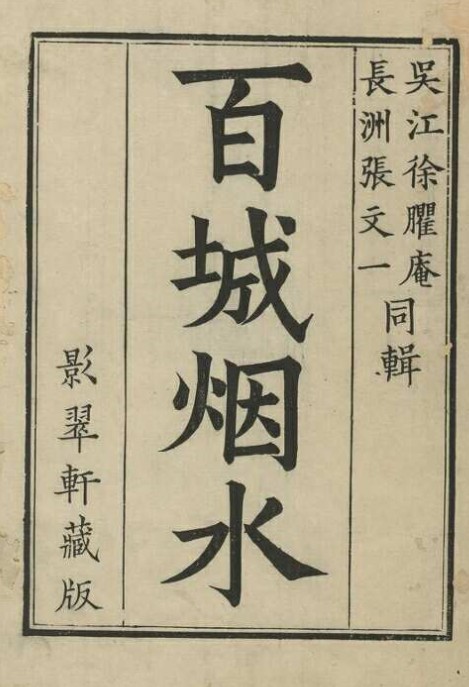 吳江徐臞庵
長洲張文一
同輯
百城烟水
影翠軒藏版